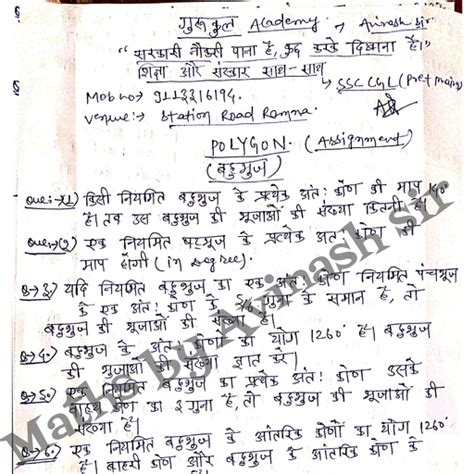 गुरुकुल Academy, Avinash Sir
"सरकारी नौकरी पाना है, कुछ करके दिखाना है।"
शिक्षा और संस्कार साथ-साथ
SSC CGL (Pre+Mains)
Mob no:→ 9113316194.
Venue:→ Station Road Ramna.
POLYGON. (Assignment)
(बहुभुज)
Que:-(1) किसी नियमित बहुभुज के प्रत्येक अंतः कोण की माप 140°
है। तब उस बहुभुज की भुजाओं की संख्या कितनी है।
Que:-(2) एक नियमित बहुभुज के प्रत्येक अंतः कोण की
माप होगी (in degree).
Q→3.) यदि नियमित बहुभुज का एक अंतः कोण नियमित पंचभुज
के एक अंतः कोण के गुना के समान है, तो
बहुभुज की भुजाओं की संख्या है।
Q→4.) बहुभुज के अंतः कोणों का योग 1260° है। बहुभुज
की भुजाओं की संख्या ज्ञात करें।
Q→5.) एक नियमित बहुभुज का प्रत्येक अंतः कोण उसके
बाह्य कोण का गुना है, तो बहुभुज की भुजाओं की
संख्या है।
Q→6.) एक नियमित बहुभुज के आंतरिक कोणों का योग 1260°
है। बाहरी कोण और बहुभुज के आंतरिक कोण के
Maths by Avinash sir